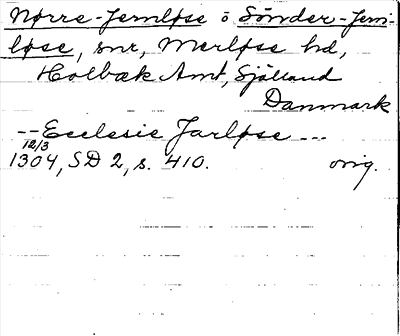 Nørre-Jernløse o Sønder-Jern-
løse, snr, Merløse hd,
Holbæk Amt, Sjölland
Danmark
-- Ecclesie Jarløse ---
12/3
1304, SD 2, s. 410. orig.